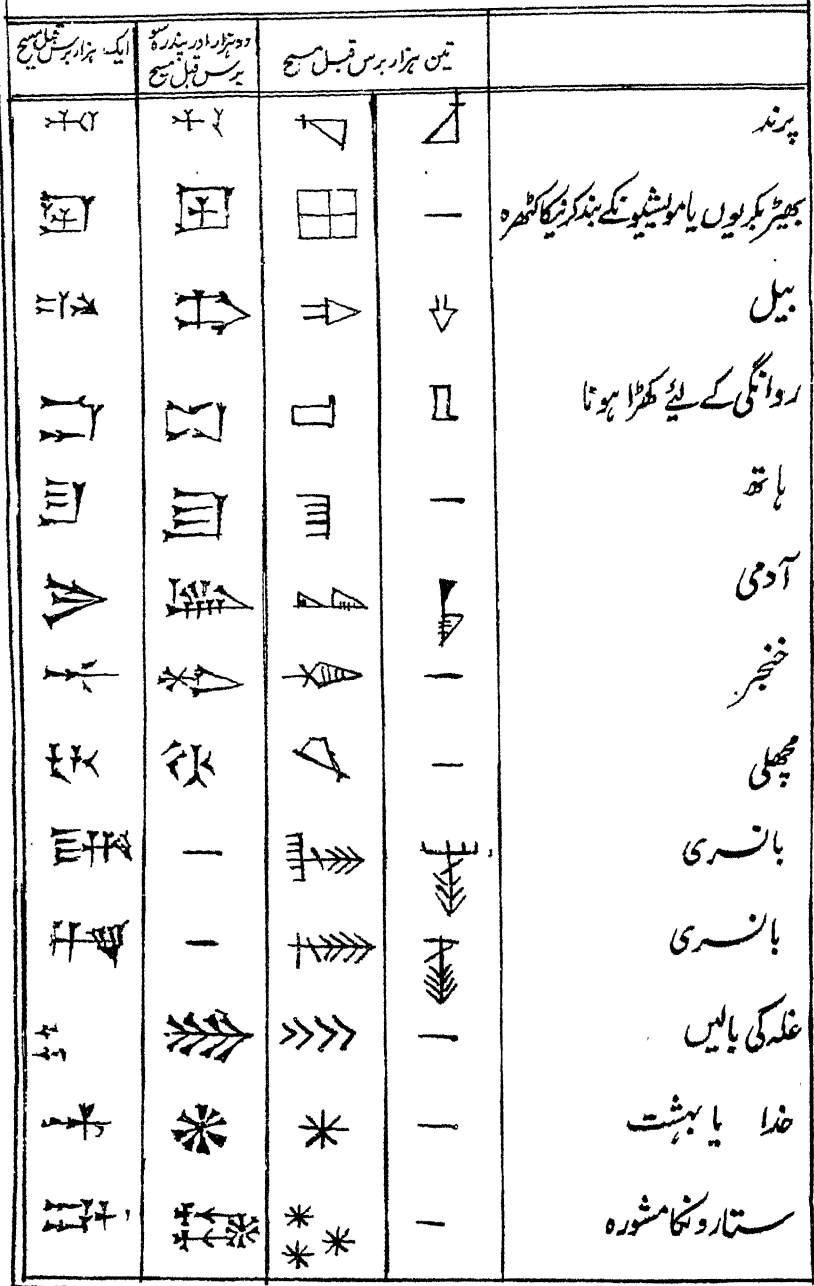 تین ہزار برس قبل مسیح
دو ہزار اور پندرہ سو
برس قبل مسیح
ایک ہزار برس قبل مسیح
پرند
بھیڑ بکریوں یا مویشیونکے بند کرنیکا کٹھرہ
بیل
روانگی کے لئے کھڑا ہونا
ہاتھ
آدمی
خنجر
مچھلی
بانسری
بانسری
غلہ کی بالیں
خدا یا بہشت
ستارونکا مشورہ